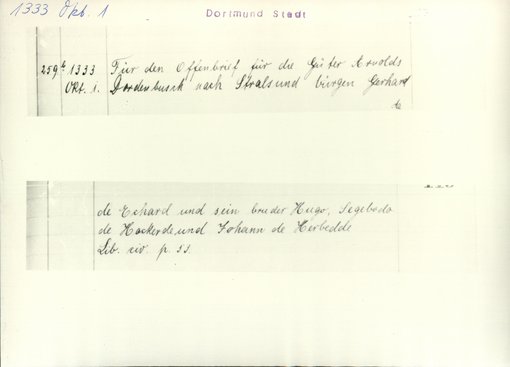 1333 Okt. 1
Dortmund Stadt
259b 1333 Für den Offenbrief für die Güter Arnolds
Okt. 1. Dordenbusch nach Stralsund bürgen Gerhard
de
de Echard und sein bruder Hugo, Segebodo
de Hackerde und Johann de Herbedde
Lib. civ. p. 53.